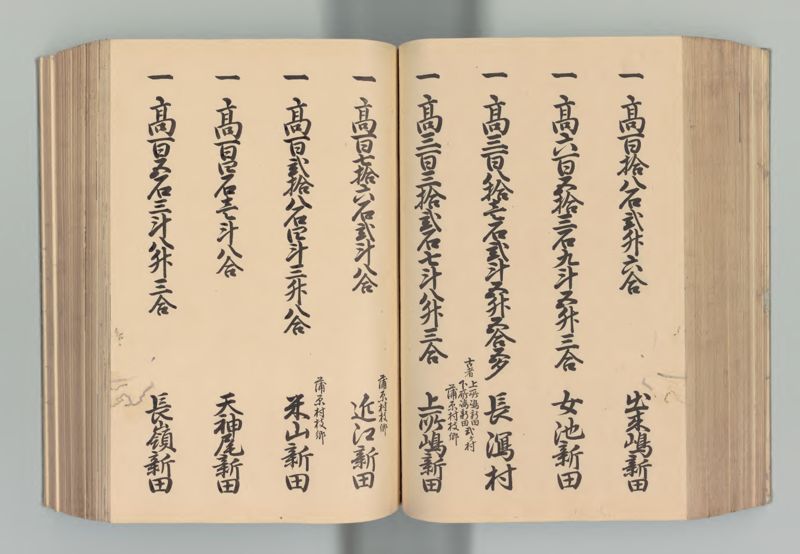 一 高百拾八石弐升六合 出来嶋新田
一 高六百五拾三石九斗五升三合 女池新田
一 高三百八拾壱石弐斗五升五合五夕 長潟村
古者上所嶋新田
下所嶋新田弐ヶ村
蒲原村枝郷
一 高三百三拾弐石七斗八升三合 上所嶋新田
蒲原村枝郷
一 高百七拾六石弐斗八合 近江新田
蒲原村枝郷
一 高百弐拾八石四斗三升八合 米山新田
一 高百四石壱斗八合 天神尾新田
一 高百五石三斗八升三合 長嶺新田